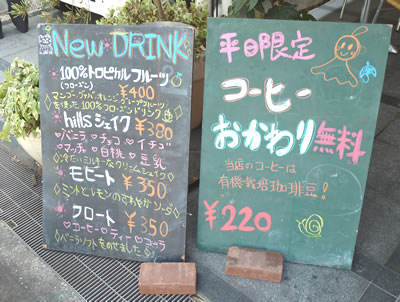 New DRINK
100%トロピカルフルーツ
(フローズン) ¥400
マンゴー、グァバ、オレンジ、グレープフルーツ
を使った100%フローズンドリンク
hillsシェイク ¥380
バニラ チョコ イチゴ
マッチャ 白桃 豆乳
冷たいミルキーなクリームシェイク
モヒート ¥350
ミントとレモンのさわやかソーダ
フロート ¥350
コーヒー ティー コーラ
バニラソフトをのせました
平日限定
コーヒー
おかわり無料
当店のコーヒーは
有機栽培珈琲豆!
¥220